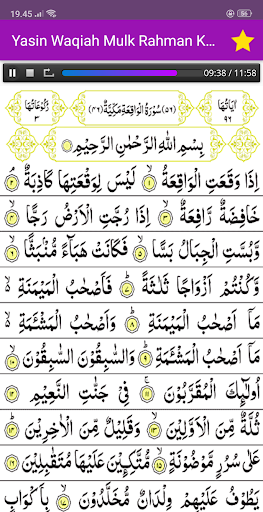 19.45
Yasin Waqiah Mulk Rahman K...
09:38 / 11:58
اٰيَاتُهَا ٩٦
(٥٦) سُوْرَةُ الْوَاقِعَةِ مَكِّيَّةٌ (٤٦)
رُكُوْعَاتُهَا ٣
بِسْمِ اللّٰهِ الرَّحْمٰنِ الرَّحِيْمِ
اِذَا وَقَعَتِ الْوَاقِعَةُ ۙ﴿١﴾ لَيْسَ لِوَقْعَتِهَا كَاذِبَةٌ ۘ﴿٢﴾
خَافِضَةٌ رَّافِعَةٌ ۙ﴿٣﴾ اِذَا رُجَّتِ الْاَرْضُ رَجًّا ۙ﴿٤﴾
وَّبُسَّتِ الْجِبَالُ بَسًّا ۙ﴿٥﴾ فَكَانَتْ هَبَآءً مُّنْۢبَثًّا ۙ﴿٦﴾
وَّكُنْتُمْ اَزْوَاجًا ثَلٰثَةً ؕ﴿٧﴾ فَاَصْحٰبُ الْمَيْمَنَةِ ۙ
مَاۤ اَصْحٰبُ الْمَيْمَنَةِ ؕ﴿٨﴾ وَاَصْحٰبُ الْمَشْـَٔمَةِ ۙ
مَاۤ اَصْحٰبُ الْمَشْـَٔمَةِ ؕ﴿٩﴾ وَالسّٰبِقُوْنَ السّٰبِقُوْنَ ۙ﴿١٠﴾
اُولٰٓئِكَ الْمُقَرَّبُوْنَ ۚ﴿١١﴾ فِيْ جَنّٰتِ النَّعِيْمِ ﴿١٢﴾
ثُلَّةٌ مِّنَ الْاَوَّلِيْنَ ۙ﴿١٣﴾ وَقَلِيْلٌ مِّنَ الْاٰخِرِيْنَ ؕ﴿١٤﴾
عَلٰى سُرُرٍ مَّوْضُوْنَةٍ ۙ﴿١٥﴾ مُّتَّكِـِٕيْنَ عَلَيْهَا مُتَقٰبِلِيْنَ ﴿١٦﴾
يَطُوْفُ عَلَيْهِمْ وِلْدَانٌ مُّخَلَّدُوْنَ ۙ﴿١٧﴾ بِاَكْوَابٍ